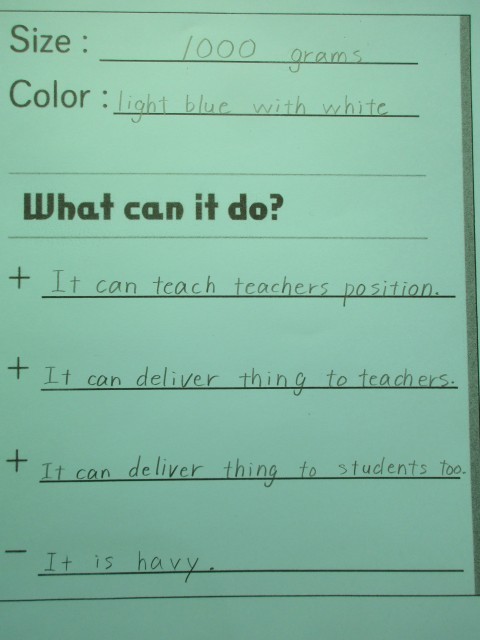 Size : 1000 grams
Color : light blue with white
What can it do?
+ It can teach teachers position.
+ It can deliver thing to teachers.
+ It can deliver thing to students too.
− It is havy.